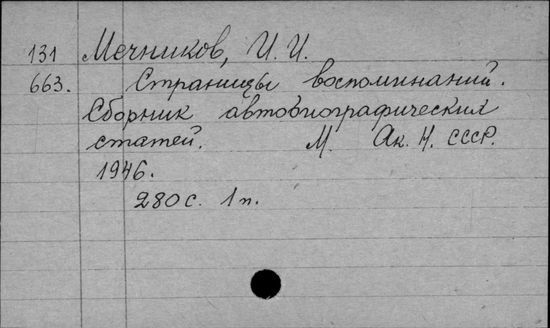 131 Мечников, И. И.
663. Страницы воспоминаний.
Сборник автобиографических
статей. М. Ак. Н. СССР.
1946.
280 с. 1 п.